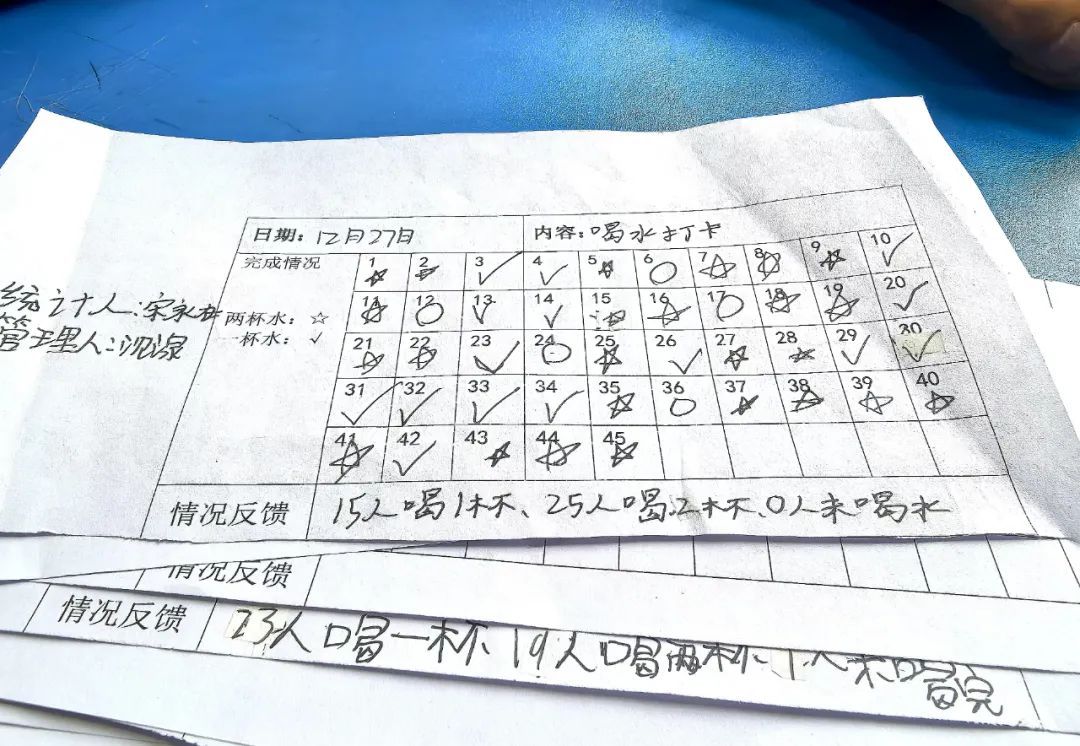 日期：12月27日 内容：喝水打卡
完成情况 1 2 3 4 5 6 7 8 9 10
统计人：宋
管理人：沉湶
两杯水：☆ 11 12 13 14 15 16 17 18 19 20
一杯水：✓
21 22 23 24 25 26 27 28 29 30
31 32 33 34 35 36 37 38 39 40
41 42 43 44 45
情况反馈 15人喝1杯、25人喝2杯、0人未喝水
情况反馈
情况反馈 23人喝一杯、19人喝两杯、1人未喝完